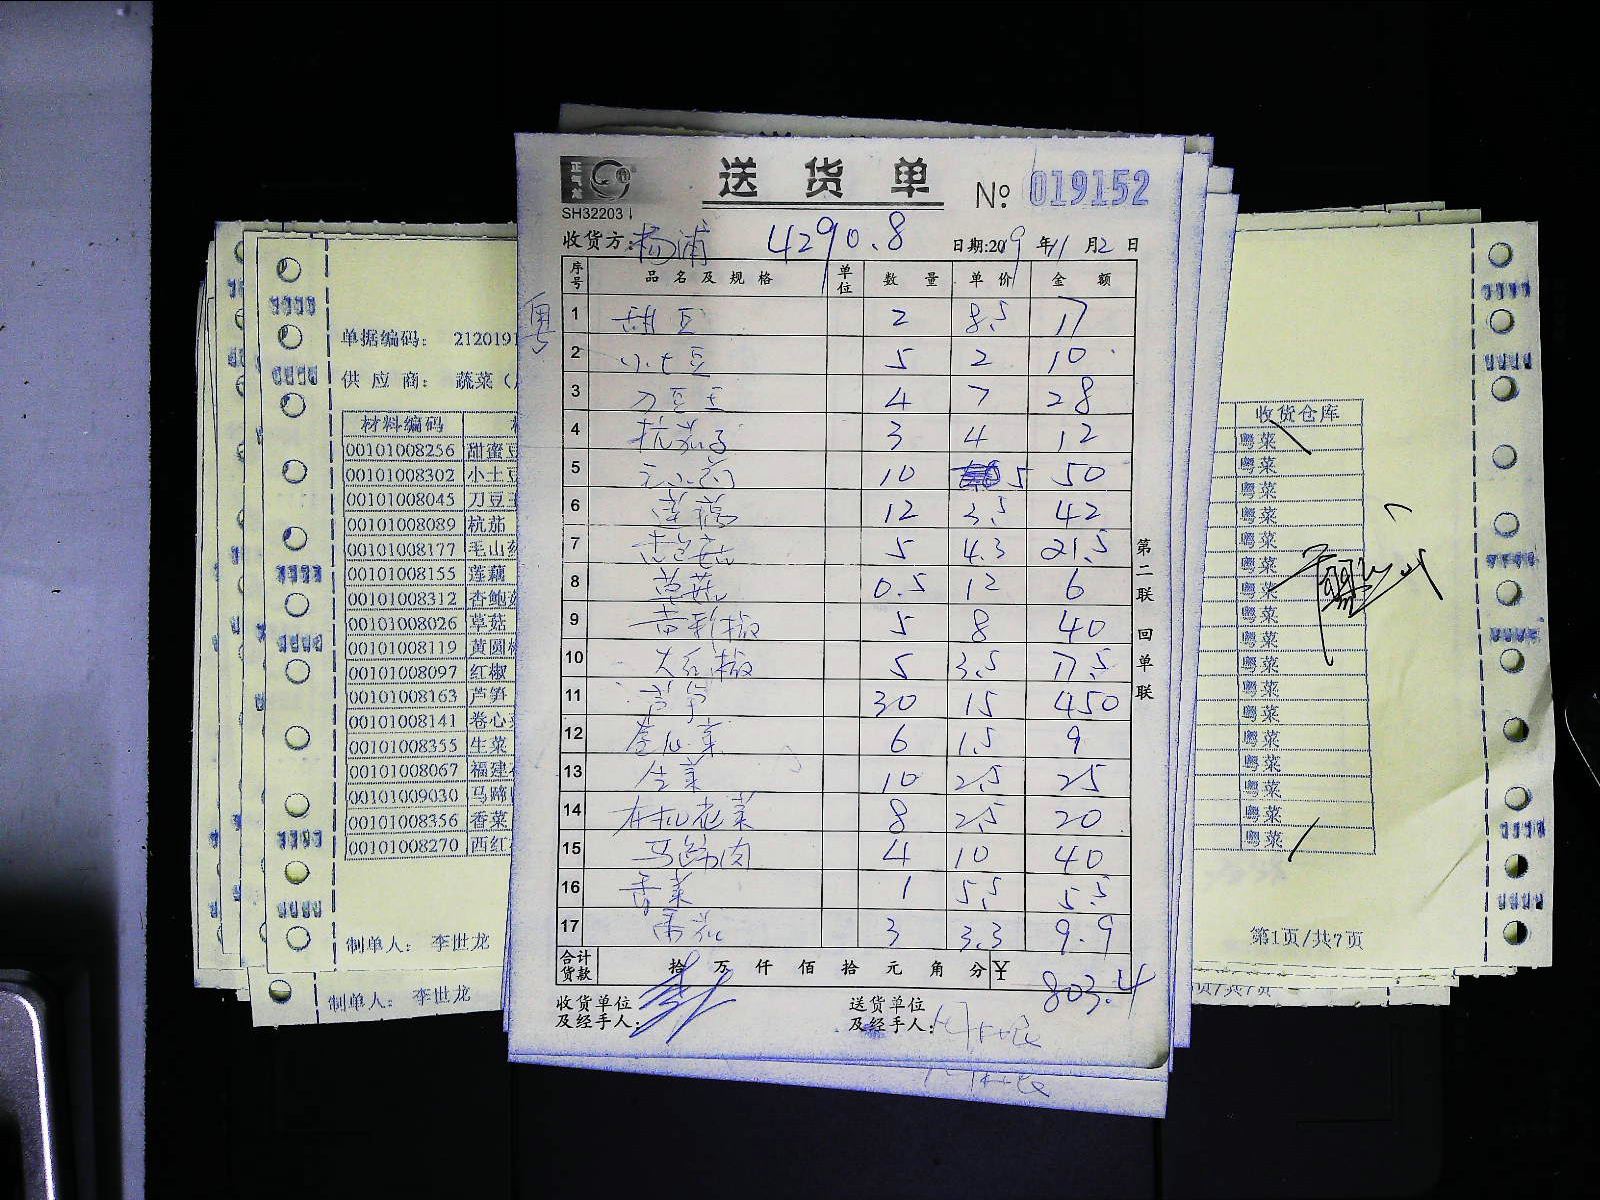 送货单 № 019152
SH32203
收货方:杨浦 4290.8 日期:2019年11月2日
粤
序号 品名及规格 单位 数量 单价 金额
1 甜豆 2 8.5 17
2 小土豆 5 2 10
3 刀豆王 4 7 28
4 杭茄子 3 4 12
5 10 5 50
6 莲藕 12 3.5 42
7 5 4.3 21.5
8 草菇 0.5 12 6
9 黄彩椒 5 8 40
10 大红椒 5 3.5 17.5
11 芦笋 30 15 450
12 卷心菜 6 1.5 9
13 生菜 10 2.5 25
14 有机花菜 8 2.5 20
15 马蹄肉 4 10 40
16 香菜 1 5.5 5.5
17 番茄 3 3.3 9.9
合计货款 拾万仟佰拾元角分 ¥ 803.4
收货单位及经手人: 送货单位及经手人:
第二联 回单联
单据编码: 2120191
供应商: 蔬菜(
材料编码
00101008256 甜蜜豆
00101008302 小土豆
00101008045 刀豆王
00101008089 杭茄
00101008177 毛山药
00101008155 莲藕
00101008312 杏鲍菇
00101008026 草菇
00101008119 黄圆椒
00101008097 红椒
00101008163 芦笋
00101008141 卷心菜
00101008355 生菜
00101008067 福建
00101009030 马蹄
00101008356 香菜
00101008270 西红
制单人: 李世龙
制单人: 李世龙
收货仓库
粤菜
粤菜
粤菜
粤菜
粤菜
粤菜
粤菜
粤菜
粤菜
粤菜
粤菜
粤菜
粤菜
粤菜
粤菜
粤菜
粤菜
第1页/共7页